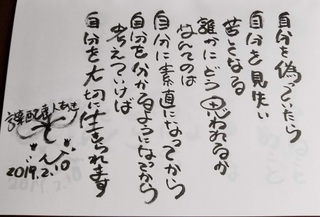 自分を偽っていたら
自分を見失い
苦となる
誰かにどう思われるか
なんてのは
自分に素直になってから
自分を分かるようになってから
考えていけば
自分を大切に生きられます
2019.2.10